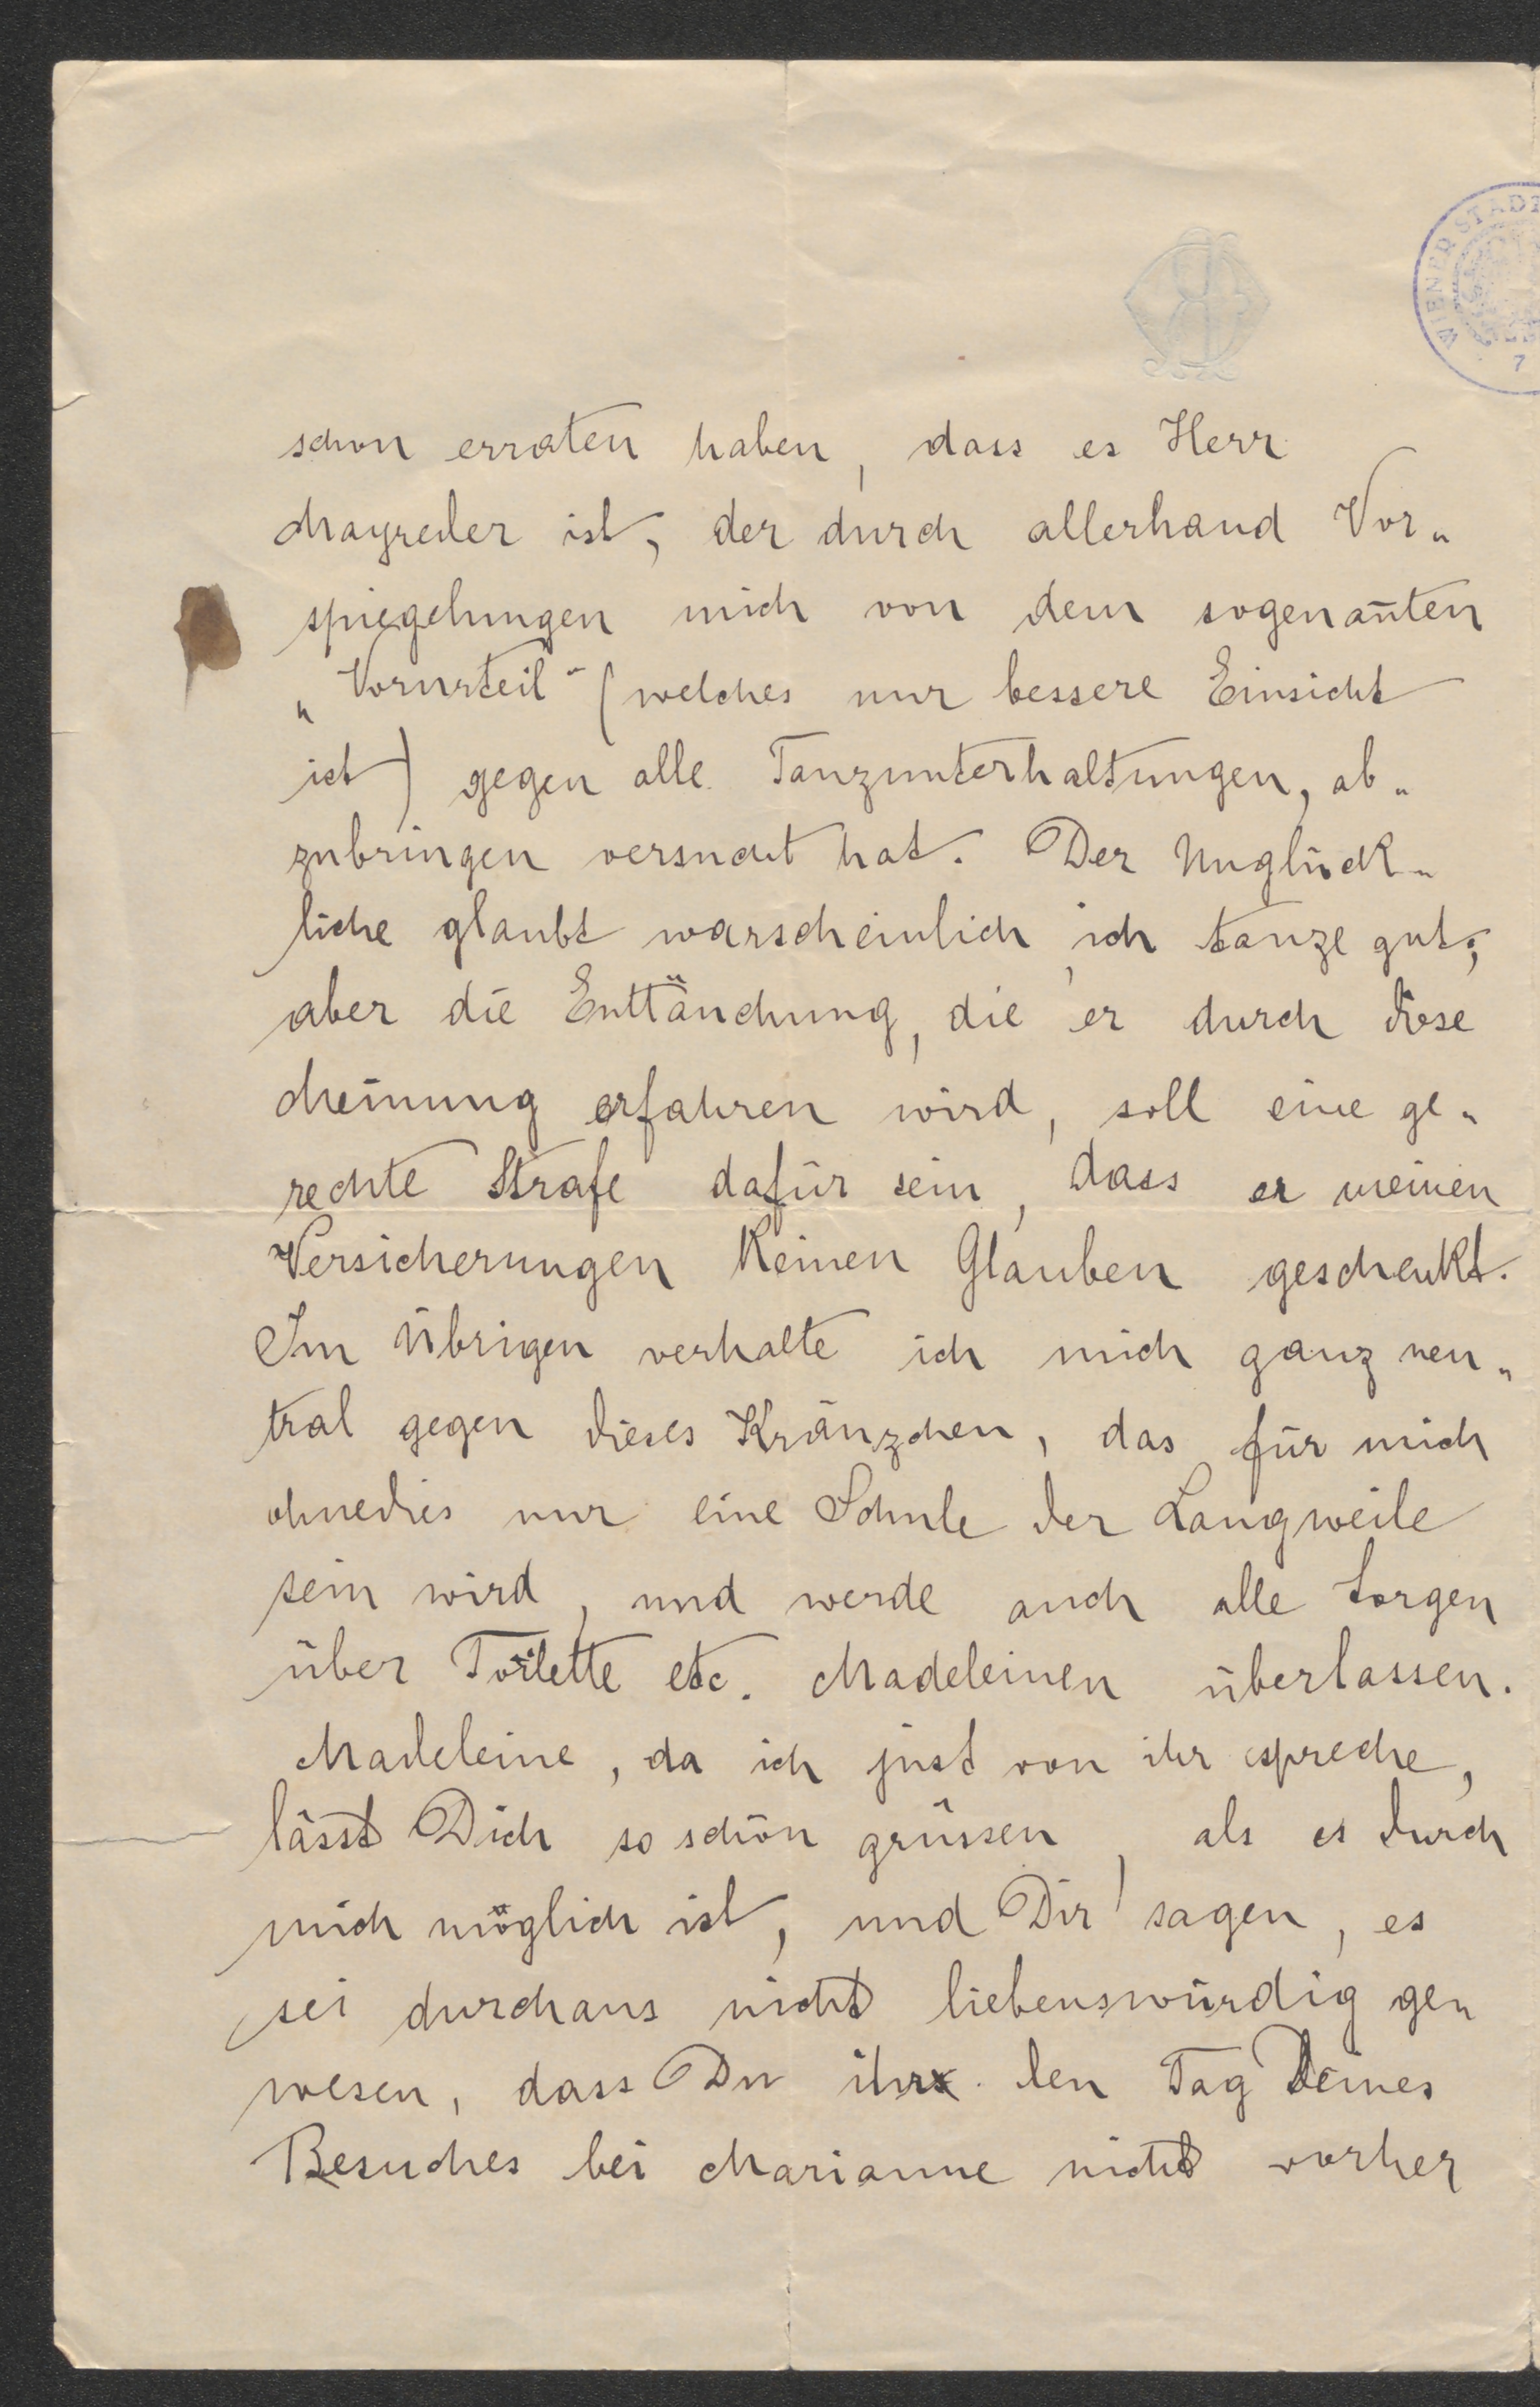 WIENER STADT
7
schon erraten haben, dass es Herr
Mayreder ist, der durch allerhand Vor„
spiegelungen mich von dem sogenan̄ten
„Vorurteil“ (welches nur bessere Einsicht
ist) gegen alle Tanzunterhaltungen, ab„
zubringen versucht hat. Der Unglück„
liche glaubt warscheinlich, ich tanze gut;
aber die Enttäuchung, die er durch diese
Meinung erfahren wird, soll eine ge„
rechte Strafe dafür sein, dass er meinen
Versicherungen keinen Glauben geschenkt.
Im Übrigen verhalte ich mich ganz neu„
tral gegen dieses Kränzchen, das für mich
ohnedies nur eine Schule der Langweile
sein wird, und werde auch alle Sorgen
über Toilette etc. Madeleinen überlassen.
Madeleine, da ich just von ihr spreche,
lässt Dich so schön grüssen, als es durch
mich möglich ist, und Dir sagen, es
sei durchaus nicht liebenswürdig ge„
wesen, dass Du ihr den Tag Deines
Besuches bei Marianne nicht vorher